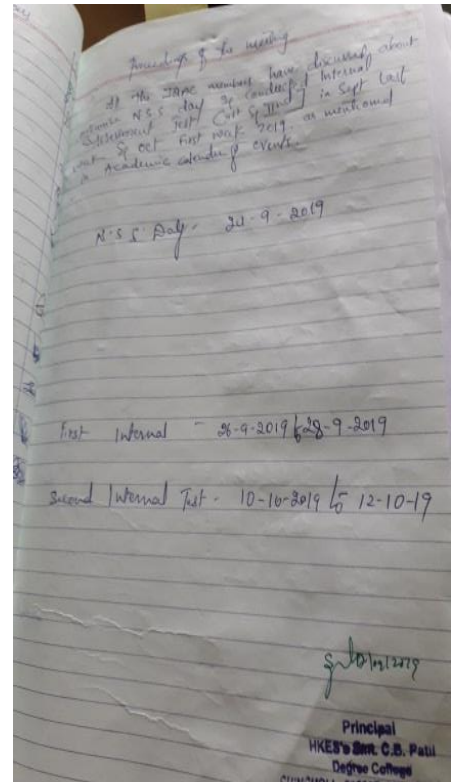 Proceedings of the meeting
All the IQAC members have discussed about
N.S.S day & conduct of Internal
Assessment Test (Ist & IInd) in Sept last
week & Oct First week 2019 as mentioned
in Academic calender of events.
N.S.S Day - 24-9-2019
First Internal - 26-9-2019 to 28-9-2019
Second Internal Test - 10-10-2019 to 12-10-19
Principal
HKES's Smt. C.B. Patil
Degree College